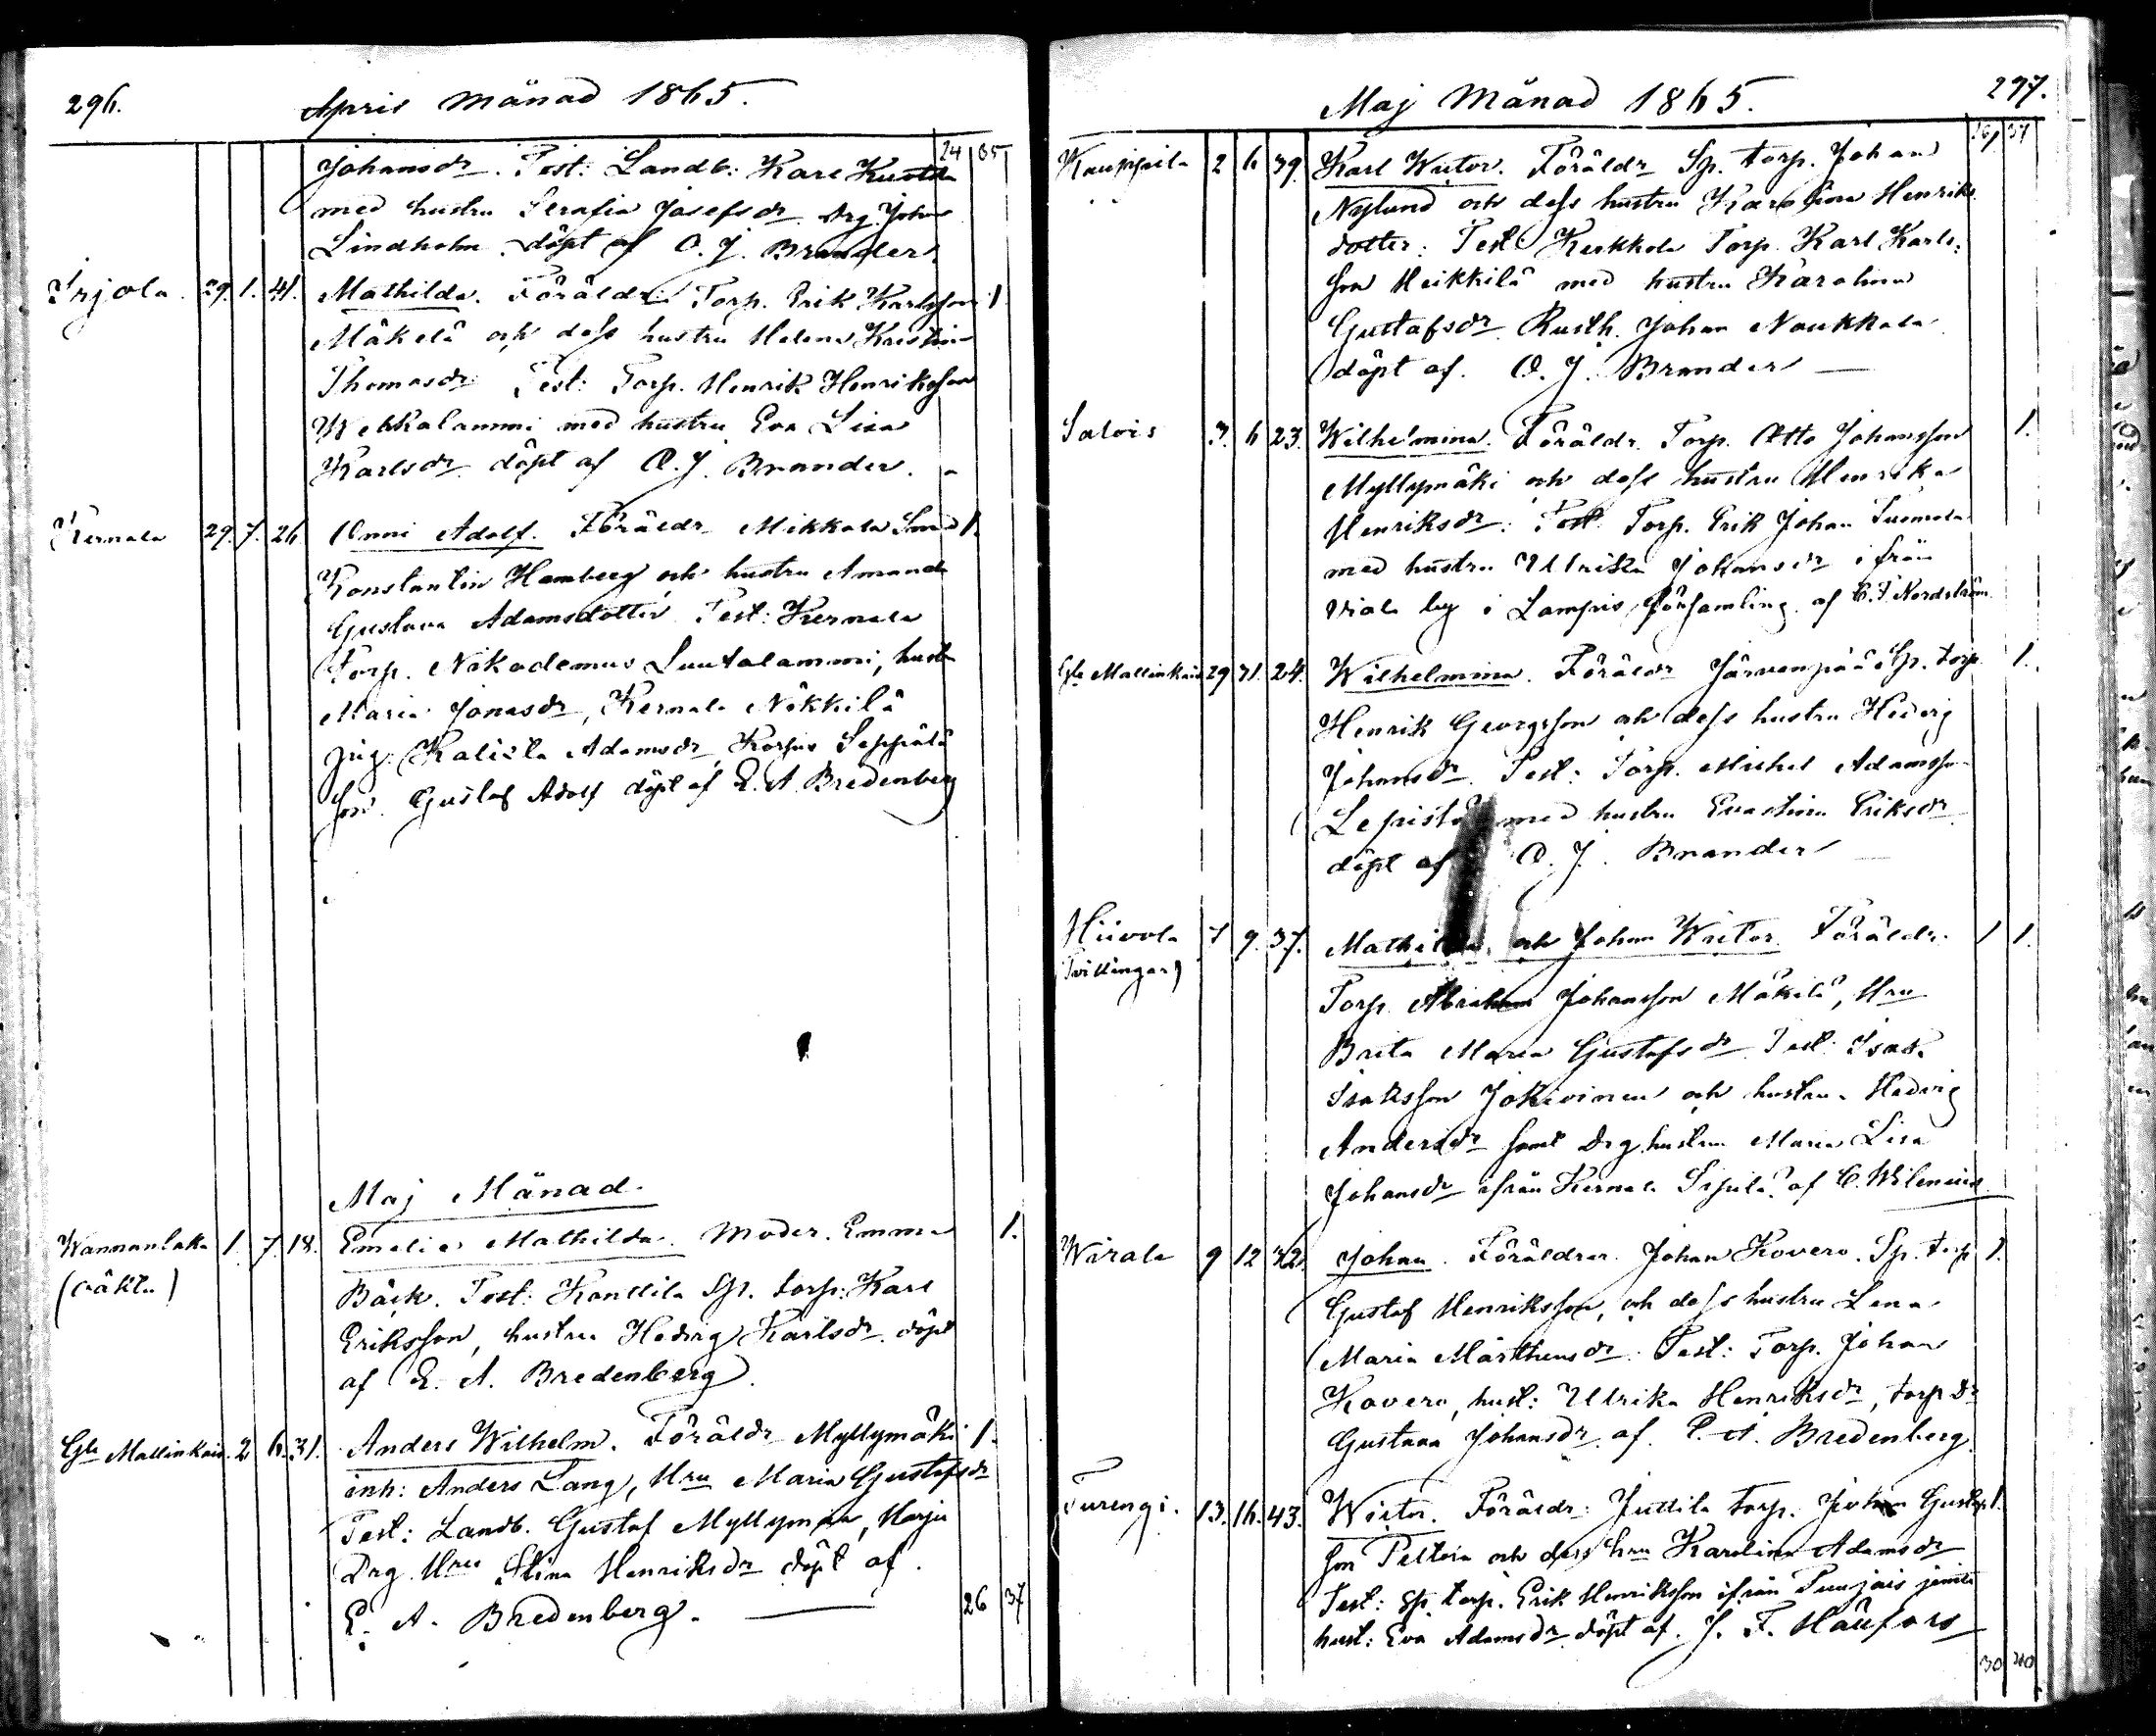 296.
April Månad 1865.
24 35
Johansdr. Test: Landb: Karl Kustda
med hustru Serafia Josefsdr Drg. Johan
Lindholm. döpt af O. J. Brander.
Irjola 29. 1. 41. Mathilda. Föräldr: Torp. Erik Karlsson 1
Mäkelä och dess hustru Helena Kristin
Thomasdr. Test: Torp. Henrik Henriksson
Wehkalammi med hustru Eva Lisa
Karlsdr döpt af O. J. Brander.
Kernala 29. 7. 26 Onni Adolf. Föräldr Mikkola Smed 1.
Konstantin Hamberg och hustru Amanda
Gustava Adamsdotter Test: Kernala
Torp. Nikodemus Luutalammi, hustr
Maria Jonasdr, Kernala Nikkilä
pig: Kalista Adamsdr, Korpus Seppälä
son. Gustaf Adolf döpt af E. A. Bredenberg
Maj Månad.
Wannanlaka 1. 7. 18. Emelie Mathilda. Moder. Emma 1.
(oäkta) Bäck. Test: Kanttila Sp. torp: Karl
Eriksson, hustru Hedvig Karlsdr. döpt
af E. A. Bredenberg.
Gla Mallinkais. 2 6. 31. Anders Wilhelm. Föräldr Myllymäki 1.
inh: Anders Lang, Hru Maria Gustafsdr
Test: Landb. Gustaf Myllymäki, Harju
Drg. Hru Stina Henriksdr döpt af
E. A. Bredenberg.
26 37
Maj Månad 1865.
297.
26 37
Kauppila 2 6 39. Karl Wictor. Föräldr Sp. torp. Johan
Nylund och dess hustru Karolina Henriks
dotter: Test: Keskkola Torp. Karl Karls:
son Heikkilä med hustru Karolina
Gustafsdr Rusth. Johan Noukkala
döpt af. O. J. Brander
Salois 3. 6 23. Wilhelmina. Föräldr. Torp. Otto Johansson 1.
Myllymäki och dess hustru Henrika
Henriksdr: Test. Torp. Erik Johan Tuomola
med hustru Ullrika Johansdr ifrån
Viala by i Lampis församling. af C. F. Nordström
Gla Mallinkais 29 31. 24. Wilhelmina. Föräldr Järvenpää Sp. torp. 1.
Henrik Georgsson och dess hustru Hedvig
Johansdr. Test: Torp. Michel Adamsson
Lepistö med hustru Evastina Eriksdr
döpt af O. J. Brander
Hiivola 7 9. 37. Mathilda. och Johan Wictor Föräldr. 1 1.
(Tvillingar) Torp. Abraham Johansson Mäkilä, Hru
Brita Maria Gustafsdr. Test: Isak
Isaksson Jokivinen och hustru Hedvig
Andersdr samt Drg. hustru Maria Lisa
Johansdr ifrån Kernala Sipilä af C. Wilenius
Wirala 9 12 32. Johan. Föräldrar. Johan Kovero. Sp. torp 1.
Gustaf Henriksson, och dess hustru Lena
Maria Marthensdr. Test: Torp. Johan
Kovero, hust: Ulrika Henriksdr, torp Dr
Gustava Johansdr af E. A. Bredenberg.
Turengi. 13. 16. 43. Wictor. Föräldr: Juttila torp. Johan Gustafs 1.
son Peltola och dess hru Karolina Adamsdr
Test: Sp. torp. Erik Henriksson ifrån Puujais jemte
hust: Eva Adamsdr döpt af. J. F. Häufors
30 40